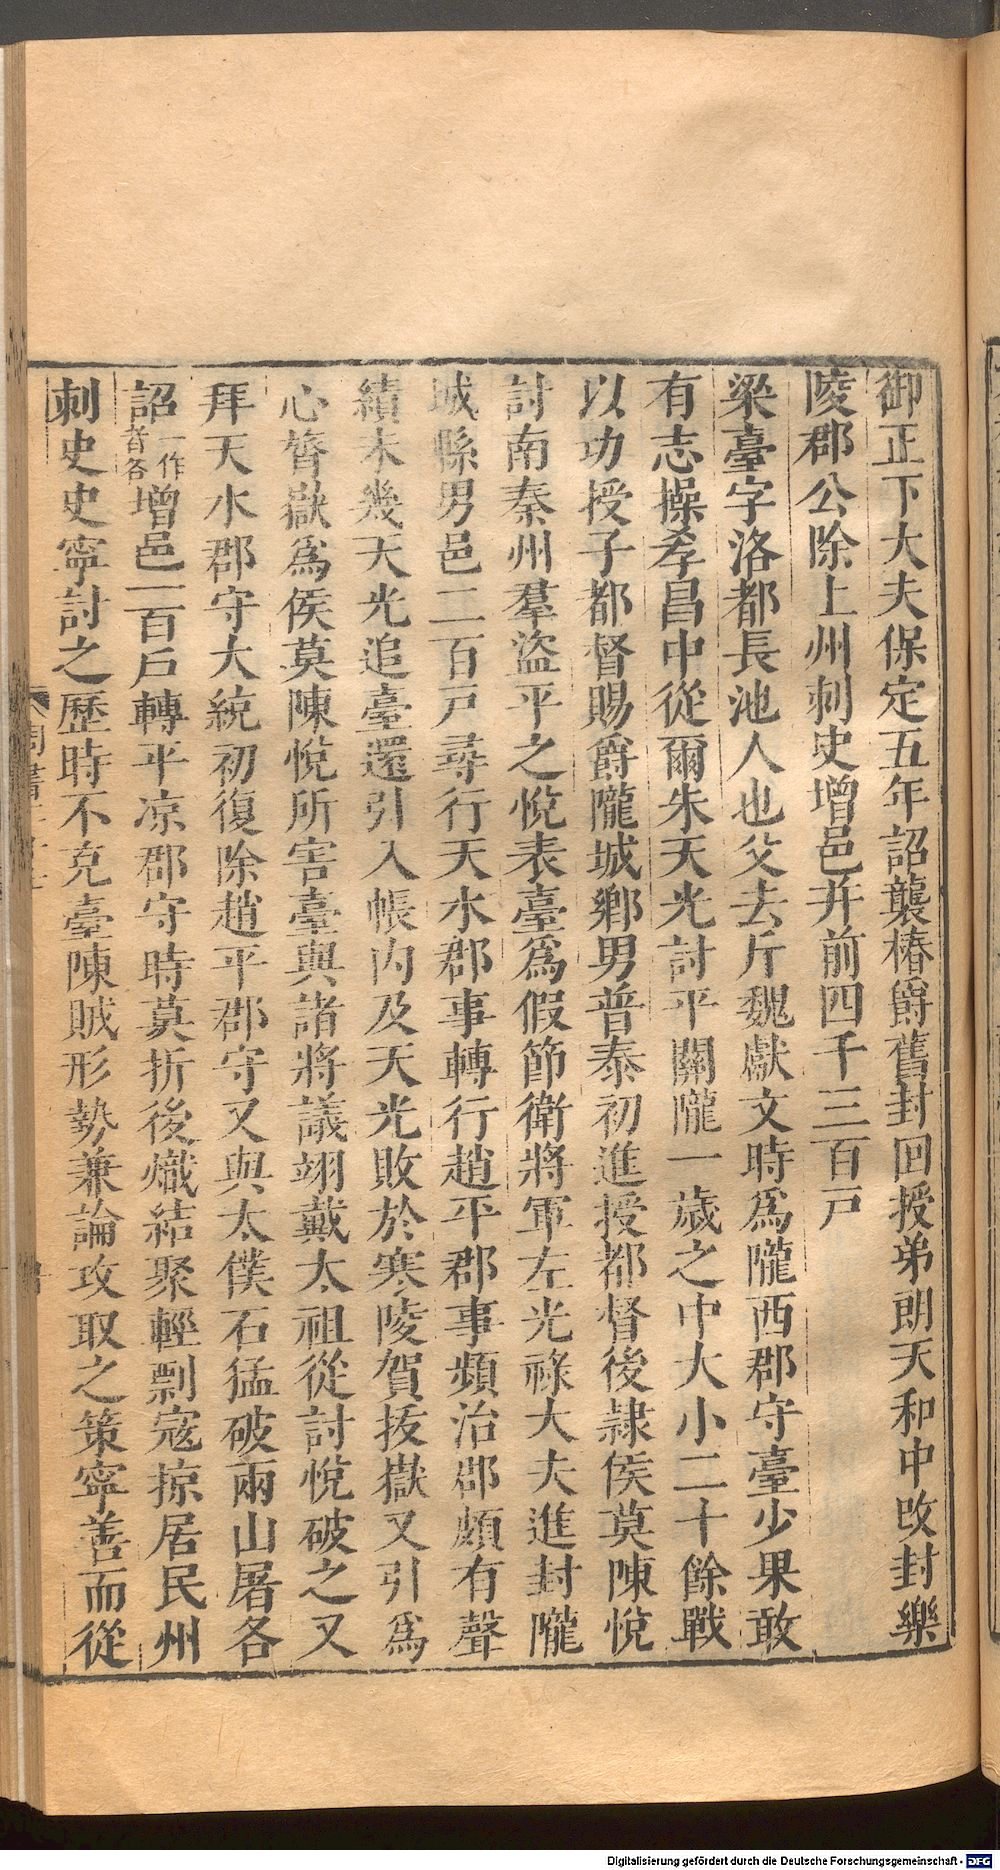 御正下大夫保定五年詔襲椿爵舊封回授弟朗天和中改封樂
陵郡公除上州刺史增邑并前四千三百戸
梁臺字洛都長池人也父去斤魏獻文時爲隴西郡守臺少果敢
有志操孝昌中從爾朱天光討平關隴一歳之中大小二十餘戰
以功授子都督賜爵隴城鄉男普泰初進授都督後隷侯莫陳悅
討南秦州羣盜平之悅表臺爲假節衛將軍左光祿大夫進封隴
城縣男邑二百戸尋行天水郡事轉行趙平郡事頻治郡頗有聲
績未幾天光追臺還引入帳内及天光敗於寒陵賀拔嶽又引爲
心膂嶽爲侯莫陳悅所害臺與諸將議翊戴太祖從討悅破之又
拜天水郡守大統初復除趙平郡守又與太僕石猛破兩山屠各
詔一作者各增邑一百戸轉平凉郡守時莫折後熾結聚輕剽寇掠居民州
刺史史寧討之歷時不克臺陳賊形勢兼論攻取之策寧善而從
周書
Digitalisierung gefördert durch die Deutsche Forschungsgemeinschaft - DFG